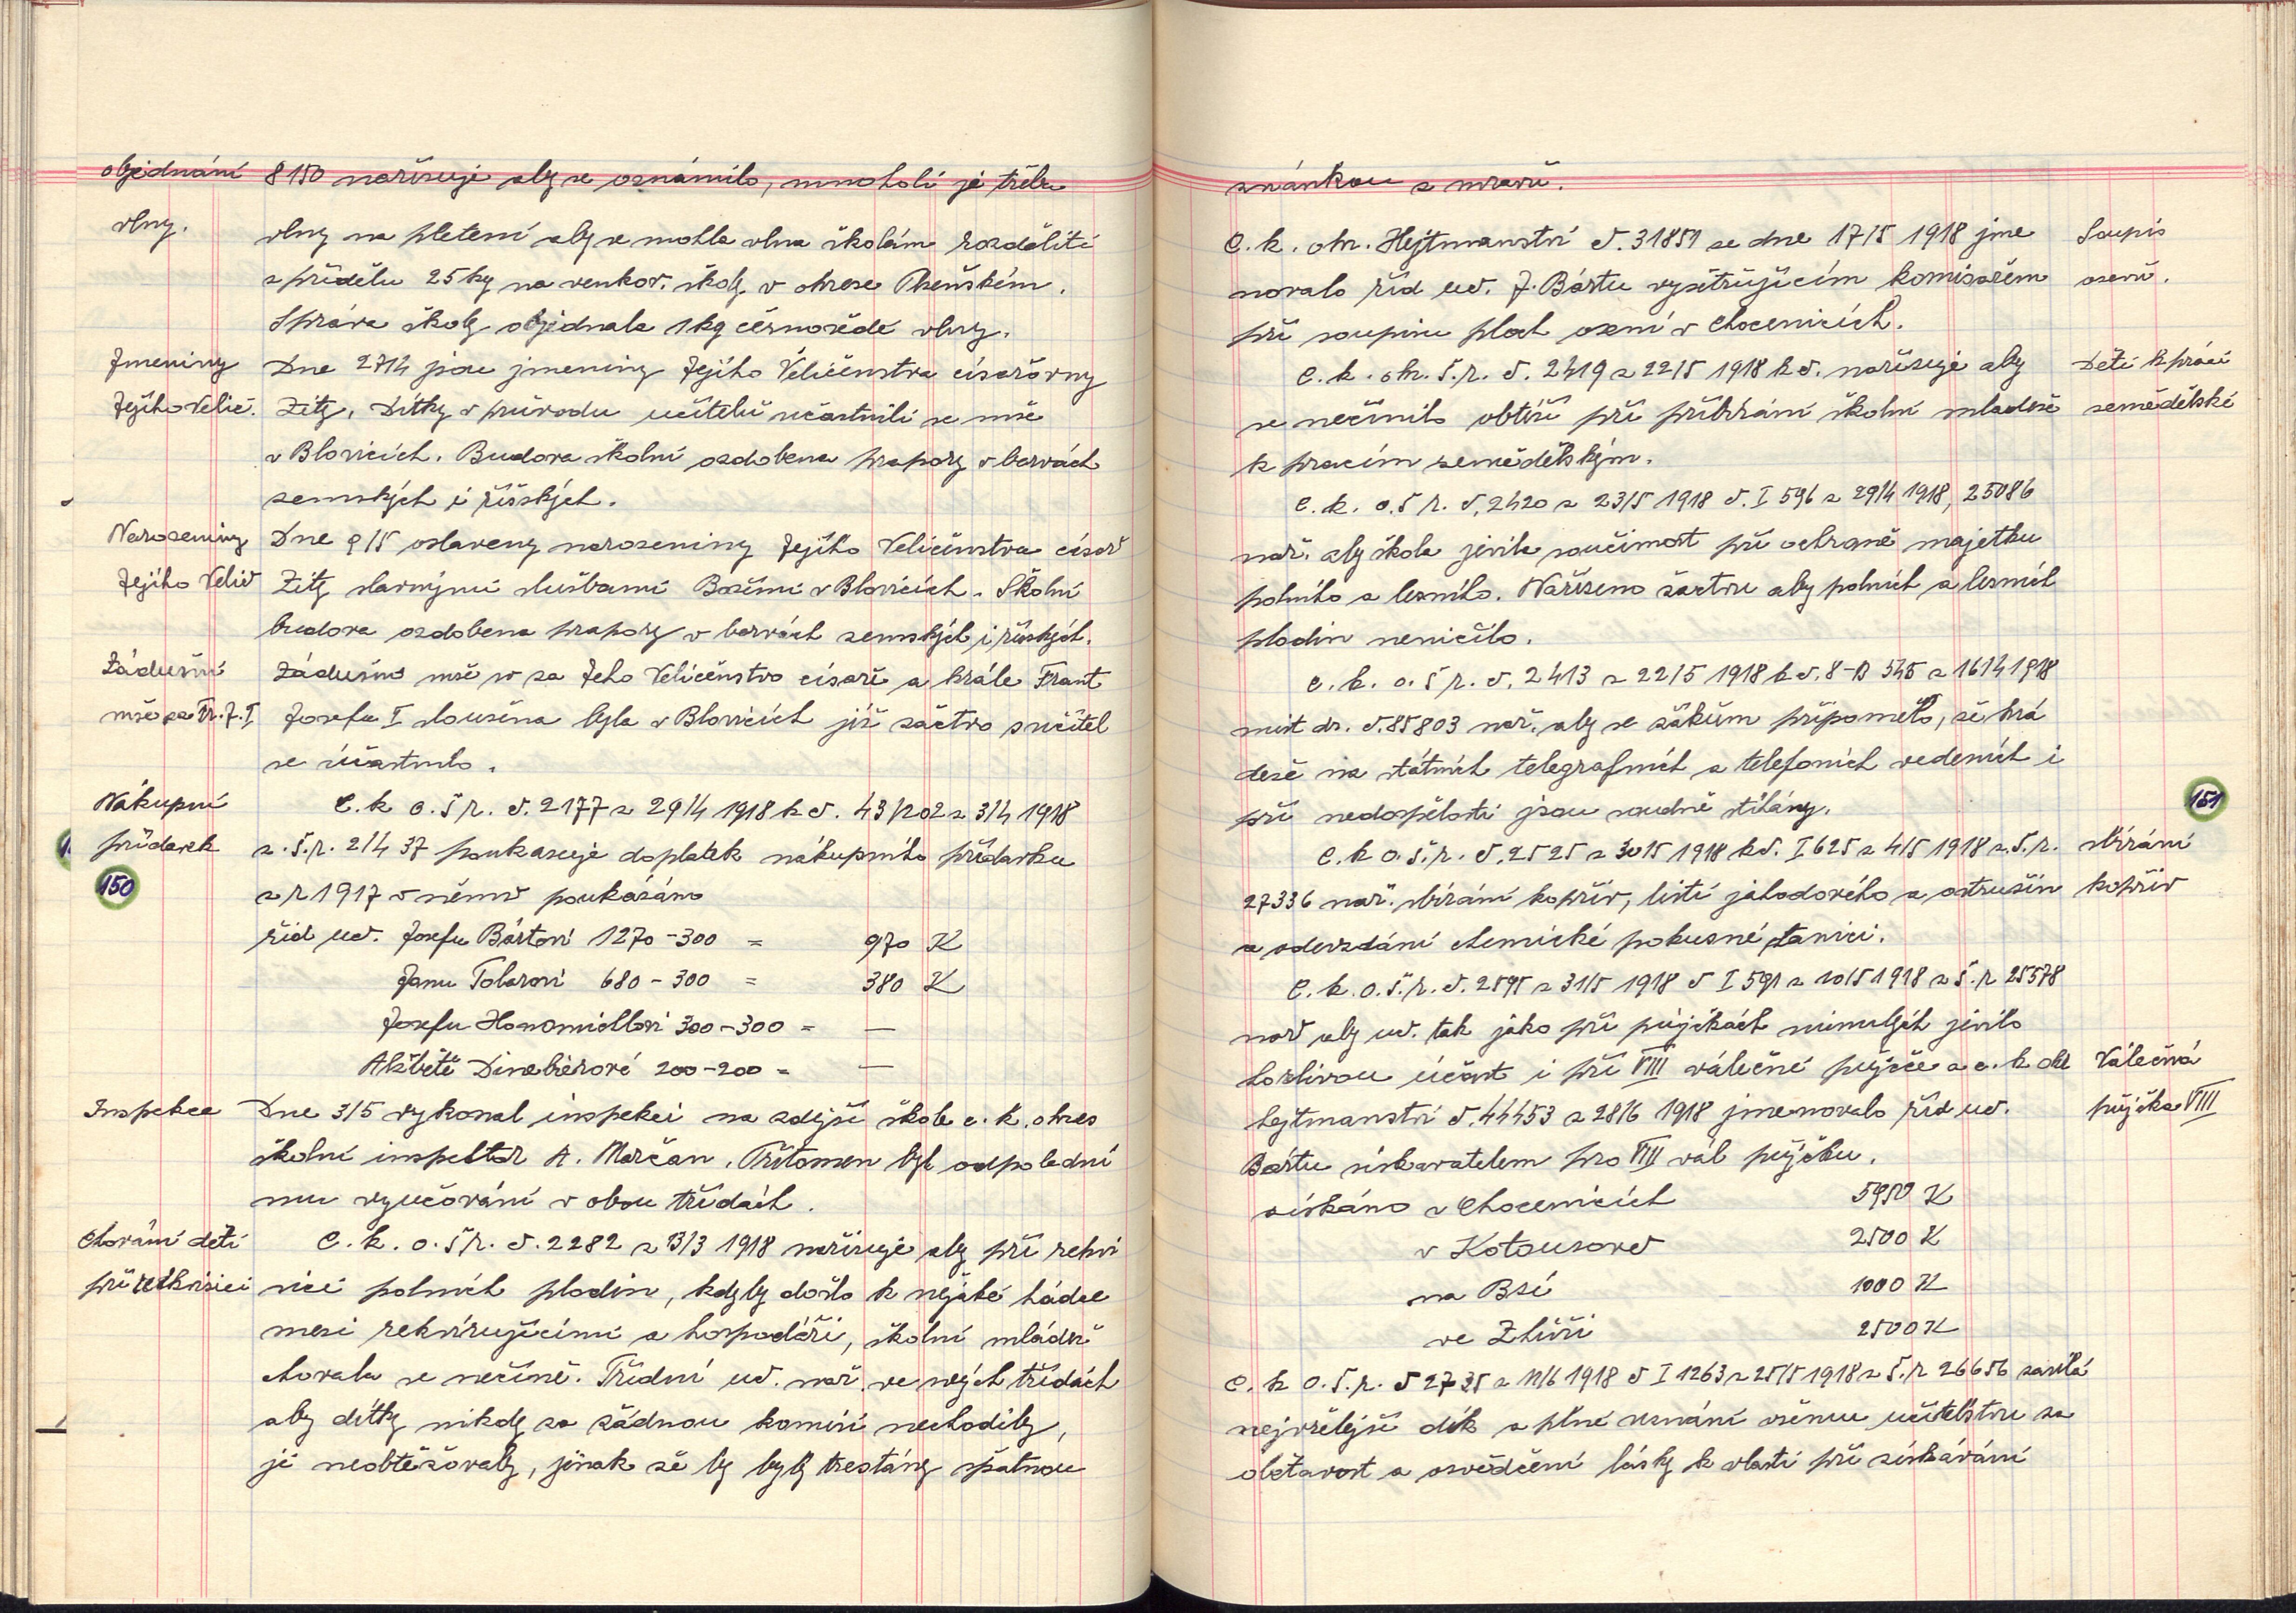 objednání 8150 nařizuje aby se oznámilo, mnoholi je třeba
vlny. vlny na pletení aby se mohla vlna školám rozděliti
z přídělu 25 kg na venkov. školy v okrese Plzeňském.
Správa školy objednala 1 kg černošedé vlny.
Jmeniny Dne 27/4 jsou jmeniny Jejího Veličenstva císařovny
Jejího Velič. Zity. Dítky v průvodu učitelů súčastnili se mše
v Blovicích. Budova školní ozdobena prapory v barvách
zemských i říšských.
Narozeniny Dne 9/5 oslaveny narozeniny Jejího Veličenstva císař
Jejího Velič Zity slavnými službami Božími v Blovicích. Školní
budova ozdobena prapory v barvách zemských i říšských.
Zádušní Zádušní mše sv za Jeho Veličenstvo císaře a krále Frant
mše za Fr. J. I Josefa I sloužena byla v Blovicích již žactvo s učitel
se účastnilo.
Nákupní C. k o. š r. č. 2177 z 29/4 1918 k č. 43/202 z 3/4 1918
přídavek z. š. r. 2/4 37 poukazuje doplatek nákupního přídavku
150 z r 1917 v němž poukázáno
říd uč. Josefu Bártovi 1270 - 300 = 970 K
Janu Tolarovi 680 - 300 = 380 K
Josefu Honomichlovi 300 - 300 = —
Alžbětě Dinebierové 200 - 200 = —
Inspekce Dne 3/5 vykonal inspekci na zdejší škole c. k. okres
školní inspektor A. Merčan. Přítomen byl odpolední
mu vyučování v obou třídách.
Chování dětí C. k. o. š r. č. 2282 z 13/3 1918 nařizuje aby při rekvi
při rekvisici sici polních plodin, kdyby došlo k nějaké hádce
mezi rekvirujícími a hospodáři, školní mládež
chovala se nečinně. Třídní uč. nař. ve svých třídách
aby dítky nikdy za žádnou komisí nechodily,
je neobtěžovaly, jinak že by byly trestány špatnou
známkou z mravů.
C. k. okr. Hejtmanství č. 31851 ze dne 17/5 1918 jme Soupis
novalo říd uč. J. Bártu vyšetřujícím komisařem osevu.
při soupisu ploch osení v Chocenicích.
C. k. okr. š. r. č. 2419 z 22/5 1918 k č. nařizuje aby Děti k práci
se nečinilo obtíží při přibírání školní mladeže zemědělské
k pracím zemědělským.
C. k. o. š r. č. 2420 z 23/5 1918 č. I 596 z 29/4 1918, 25086
nař. aby škola jevila součinnost při ochraně majetku
polního a lesního. Nařízeno žactvu aby polních a lesních
plodin neničilo.
C. k. o. š r. č. 2413 z 22/5 1918 k č. 8-B 545 z 16/4 1918
mist dr. č. 85803 nař. aby se žákům připomělo, že krá
deže na státních telegrafních a telefoních vedeních i
při nedospělosti jsou soudně stíhány. 151
C. k o. š. r. č. 2525 z 30/5 1918 k č. I 625 z 4/5 1918 z. š. r. sbírání
27336 nař. sbírání kopřiv, listí jahodového a ostružin kopřiv
a odevzdání chemické pokusné stanici.
C. k. o. š. r. č. 2595 z 31/5 1918 č I 591 z 10/5 1918 z š. r 25578
nař aby uč. tak jako při půjčkách minulých jevilo
horlivou účast i při VIII válečné půjčce a c. k okr Válečná
hejtmanství č. 44453 z 28/6 1918 jmenovalo říd uč. půjčka VIII
Bártu získavatelem pro VIII vál půjčku.
získáno v Chocenicích 5950 K
v Kotousově 2500 K
na Bzí 1000 K
ve Zhůři 2500 K
C. k o. š. r. č 2735 z 11/6 1918 č I 1263 z 25/5 1918 z š. r 26656 zasílá
nejvřelejší dík a plné uznání všemu učitelstvu za
obětavost a osvědčení lásky k vlasti při získávání